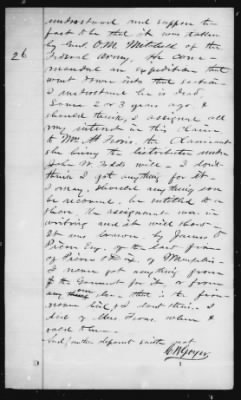 26
understand and suppose the
fact to be that it was taken
by Genl O.M. Mitchell of the
Federal Army. He com-
manded an expedition that
went down into that section
I understand he is dead.
Some 2 or 3 years ago, I
should think, I assigned all
my interest in this claim
to Mrs. M. Irons, the Claimant
she being the distributee under
John W. will - I don't
think I got anything for it -
I may, should anything ever
be recovered, be entitled to a
share. The assignment was in
writing and it will show -
It was drawn by James
Esq. of the Law firm
of of Memphis -
I never got anything from
the Government for it, or from
any one else - that is the
I don't think I
did of Mrs Irons, when I
sold to her.
And further deponent saith not